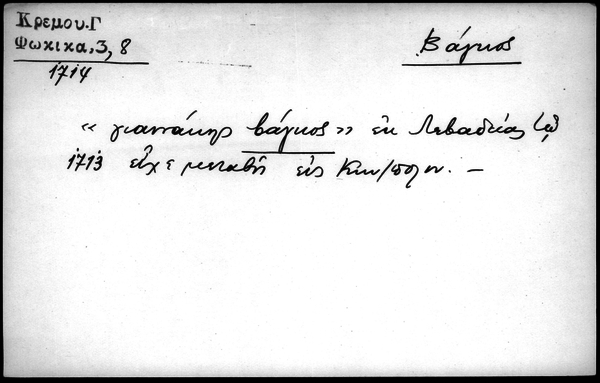 Κρεμου.Γ
Φωκικα,3,8
1714
Βάγκος
« γιαννάκης βάγκος » ἐκ Λεβαδείας τῷ
1713 εἶχε μεταβῆ εἰς Κων/πολιν. —